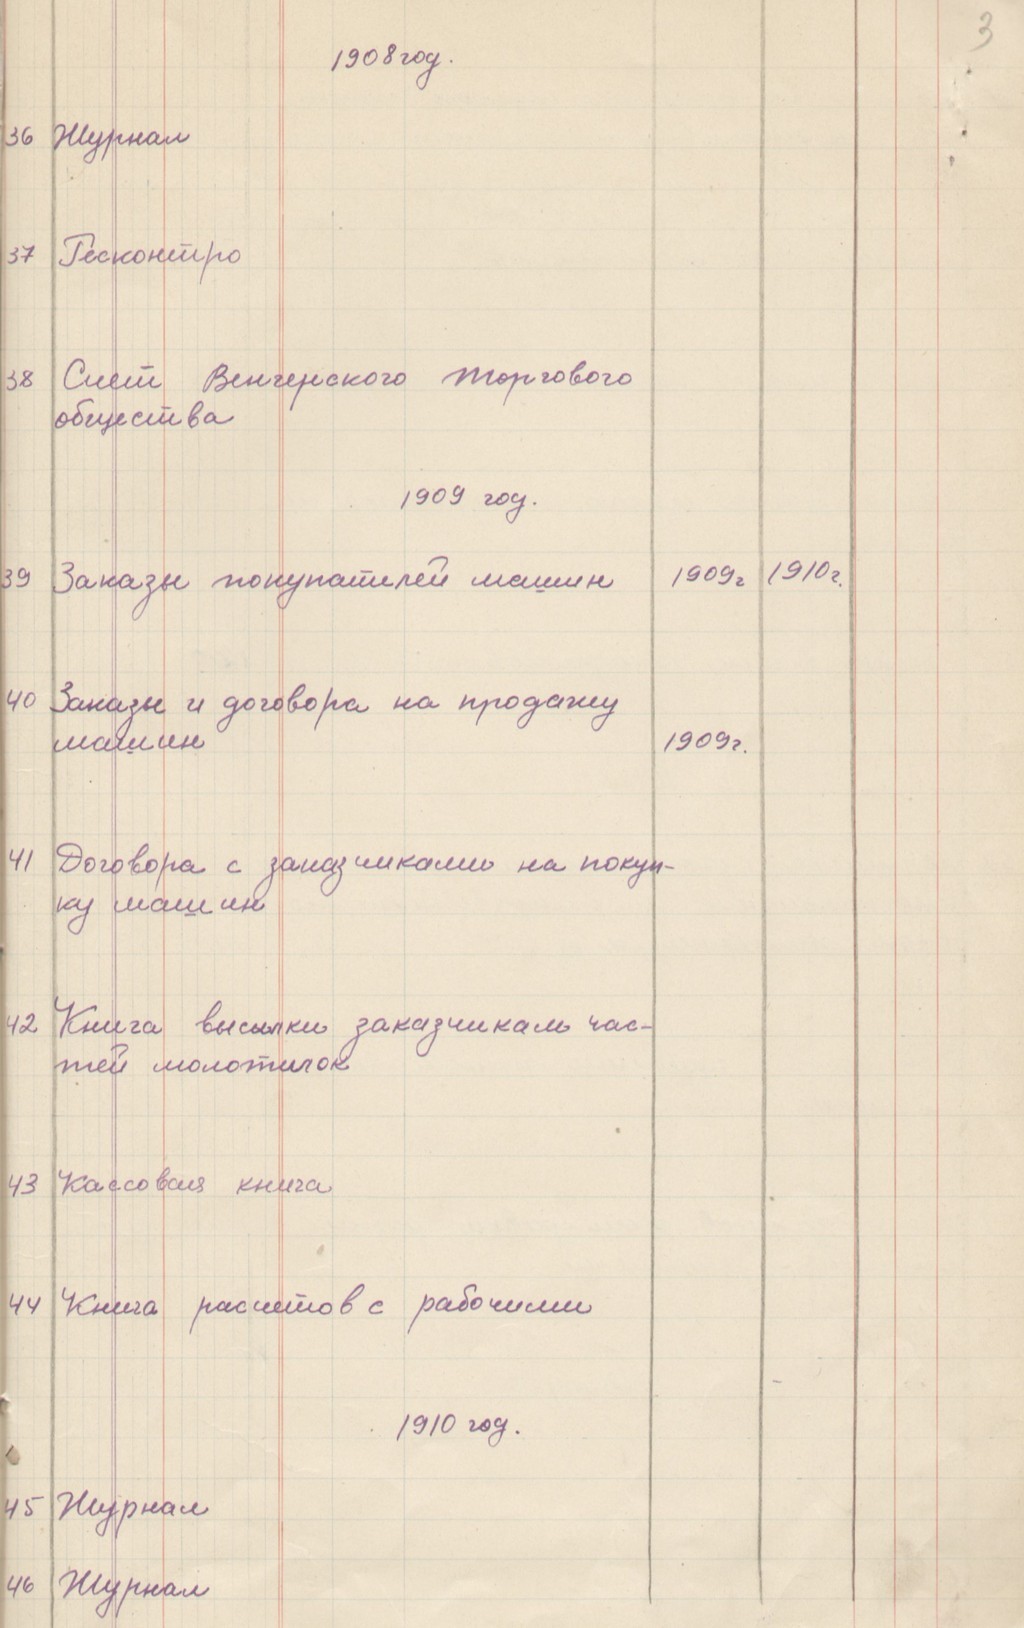 3
1908 год.
36 Журнал
37 Ресконтро
38 Счет Венгерского торгового
общества
1909 год.
39 Заказы покупателей машин 1909г 1910г.
40 Заказы и договора на продажу
машин 1909г.
41 Договора с заказчиками на покуп-
ку машин
42 Книга высылки заказчикам час-
тей молотилок
43 Кассовая книга
44 Книга расчетов с рабочими
1910 год.
45 Журнал
46 Журнал